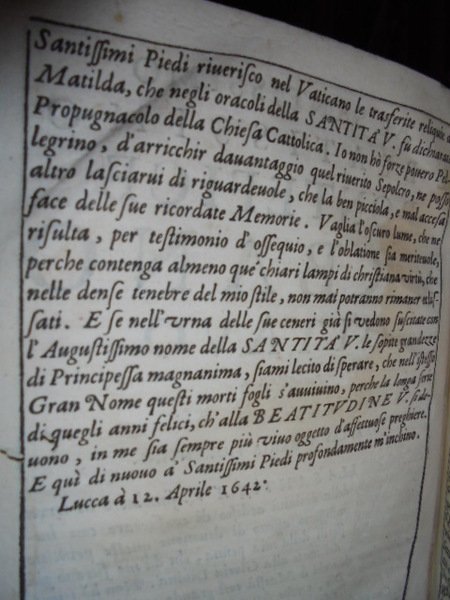 Santissimi Piedi riuerisco nel Vaticano le trasferite reliquie
Matilda, che negli oracoli della SANTITA' V. fù dichiarata
Propugnacolo della Chiesa Cattolica. Io non hò forze pouero Pel-
legrino, d'arricchir dauantaggio quel riuerito Sepolcro, ne posso
altro lasciarui di riguardeuole, che la ben picciola, e mal accesa
face delle sue ricordate Memorie. Vaglia l'oscuro lume, che ne
risulta, per testimonio d'ossequio, e l'oblatione sia meriteuole,
perche contenga almeno que' chiari lampi di christiana virtù, che
nelle dense tenebre del mio stile, non mai potranno rimaner eclis-
sati. E se nell'vrna delle sue ceneri già si vedono suscitate con
l'Augustissimo nome della SANTITA' V. le sopite grandezze
di Principessa magnanima, siami lecito di sperare, che nell'istesso
Gran Nome questi morti fogli s'auuiuino, perche la longa serie
di quegli anni felici, ch'alla BEATITVDINE V. si de-
uono, in me sia sempre più viuo oggetto d'affettuose preghiere.
E quì di nuouo a' Santissimi Piedi profondamente m'inchino.
Lucca à 12. Aprile 1642.